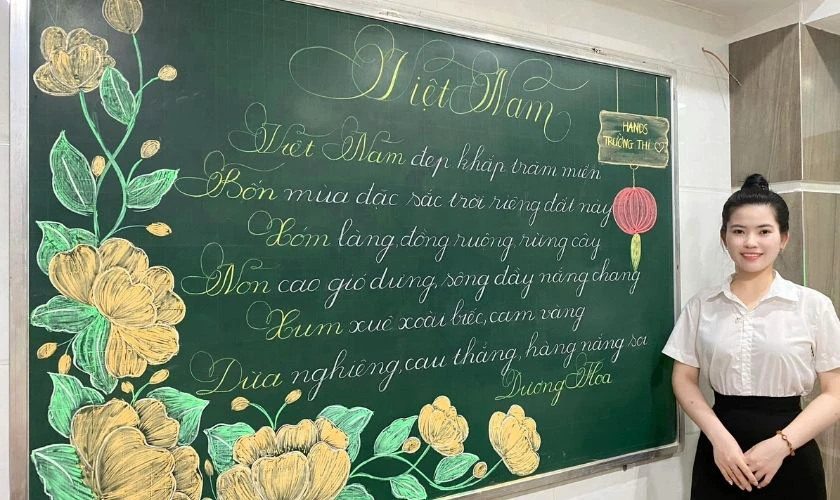 Việt Nam
HANDS
TRƯỜNG THI
Việt Nam đẹp khắp trăm miền
Bốn mùa đặc sắc trời riêng đất này
Xóm làng, đồng ruộng, rừng cây
Non cao gió dựng, sông đầy nắng chang
Xum xuê xoài biếc, cam vàng
Dừa nghiêng, cau thẳng, hàng nắng soi
Dương Hoa